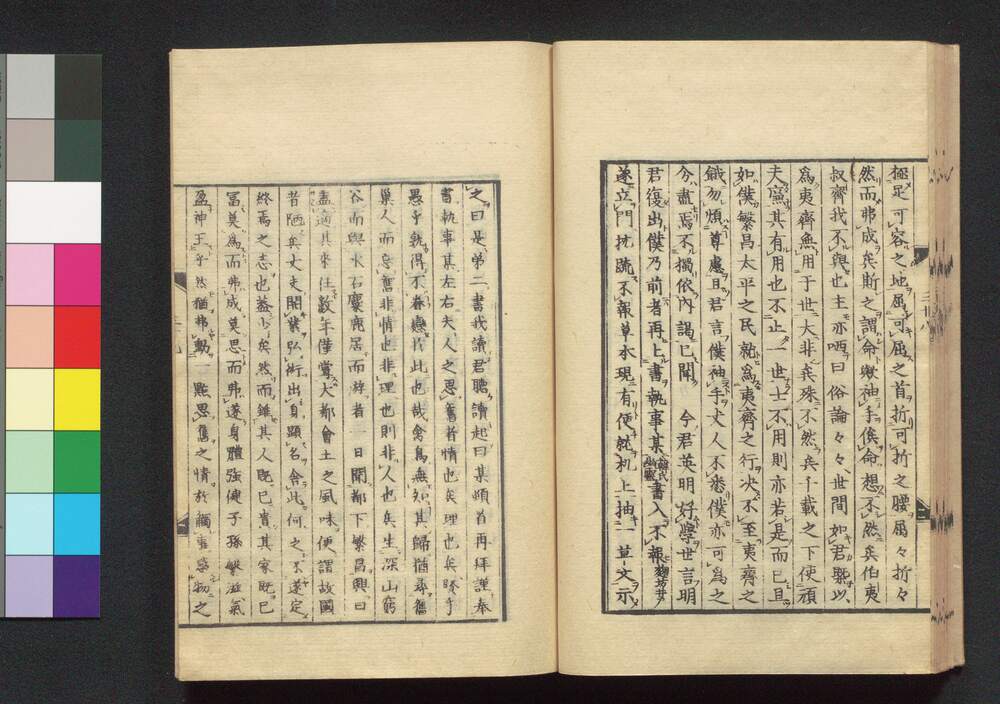 極足可容之地屈可屈之首折可折之腰屈々折々
然而弗成矣斯之謂命歟袖手俟命想不然矣伯夷
叔齊我不與也主亦哂曰俗論々々世間如君槩以
爲夷齊無用于世大非矣殊不然矣千載之下使頑
夫廉其有用也不止一世士不用則亦若是而已且
如僕繁昌太平之民就爲夷齊之行决不至夷齊之
餓勿煩尊慮且君言僕袖手丈人不悉僕亦可爲之
今盡焉不獨依內謁已聞今君英明好學世言明
君復出僕乃前者再上書執事某書入不報
遂立門抗疏不報草本現有便就机上抽一草文示
之曰是第二書我讀君聽讀起曰某頓首再拜謹奉
書執事某左右夫人之思舊者情也矣理也矣賢乎
愚乎孰得不眷戀於此也哉禽鳥無知其歸猶尋舊
巢人而忘舊非情也非理也則非人也矣生深山窮
谷而與水石麋鹿居而游者一日聞都下繁昌輿曰
盍適其來住數年僅嘗大都會土之風味便謂故國
昔陋矣丈夫開業弘術出身顯名舍此何之不遂定
終焉之志也蓋少矣然而雖其人既已貴其家既已
冨莫爲而弗成莫思而弗遂身體強健子孫繁滋氣
盈神王乎然猶弗動一點思舊之情於觸事感物之